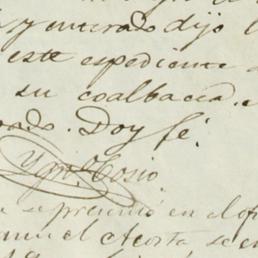 y enterado dijo
este espediente
su coalbacea.
Doy fé.
Ygn.º Cosio
se presentó en el
Acosta, se